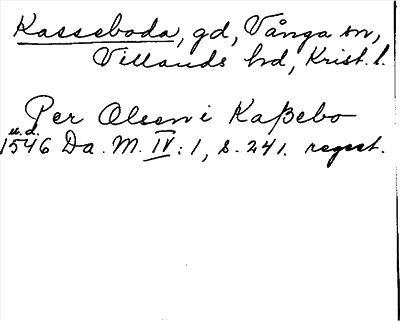 Kasseboda, gd, Vånga sn,
Villands hd, Krist. l.
Per Olssen i Kaßebo
u.d.
1546 Da. M. IV:1, s. 241. regest.